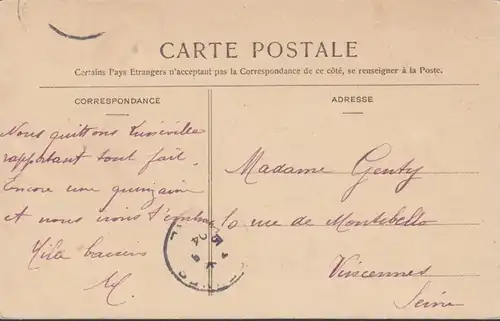 CARTE POSTALE
Certains Pays Etrangers n'acceptant pas la Correspondance de ce côté, se renseigner à la Poste.
CORRESPONDANCE
Nous quittons Lunéville
rapportant tout fait.
Encore une quinzaine
et nous irons
Mille baisers
M.
ADRESSE
Madame Genty
10 rue de Montebello
Vincennes
Seine